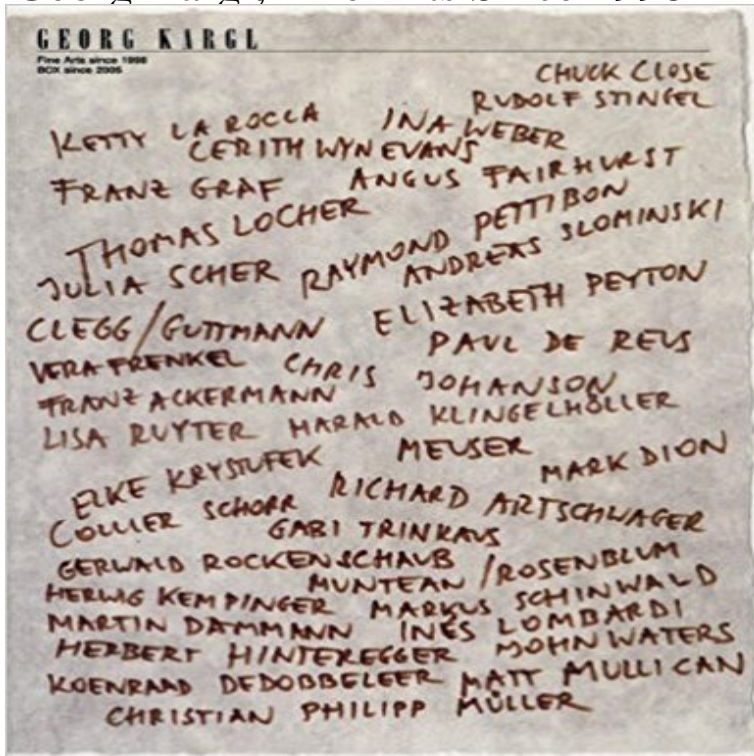 GEORG KARGL
Fine Arts since 1998
BOX since 2005
CHUCK CLOSE
RUDOLF STINGEL
KETTY LA ROCCA INA WEBER
CERITH WYN EVANS
FRANZ GRAF ANGUS FAIRHURST
THOMAS LOCHER
JULIA SCHER RAYMOND PETTIBON
ANDREAS SLOMINSKI
CLEGG/GUTTMANN ELIZABETH PEYTON
PAUL DE REUS
VERA FRENKEL CHRIS JOHANSON
FRANZ ACKERMANN
LISA RUYTER HARALD KLINGELHÖLLER
MEUSER
ELKE KRYSTUFEK MARK DION
COLLIER SCHORR RICHARD ARTSCHWAGER
GABI TRINKAUS
GERWALD ROCKENSCHAUB
MUNTEAN/ROSENBLUM
HERWIG KEMPINGER MARKUS SCHINWALD
MARTIN DAMMANN INÉS LOMBARDI
HERBERT HINTEREGGER JOHN WATERS
KOENRAAD DEDOBBELEER MATT MULLICAN
CHRISTIAN PHILIPP MÜLLER